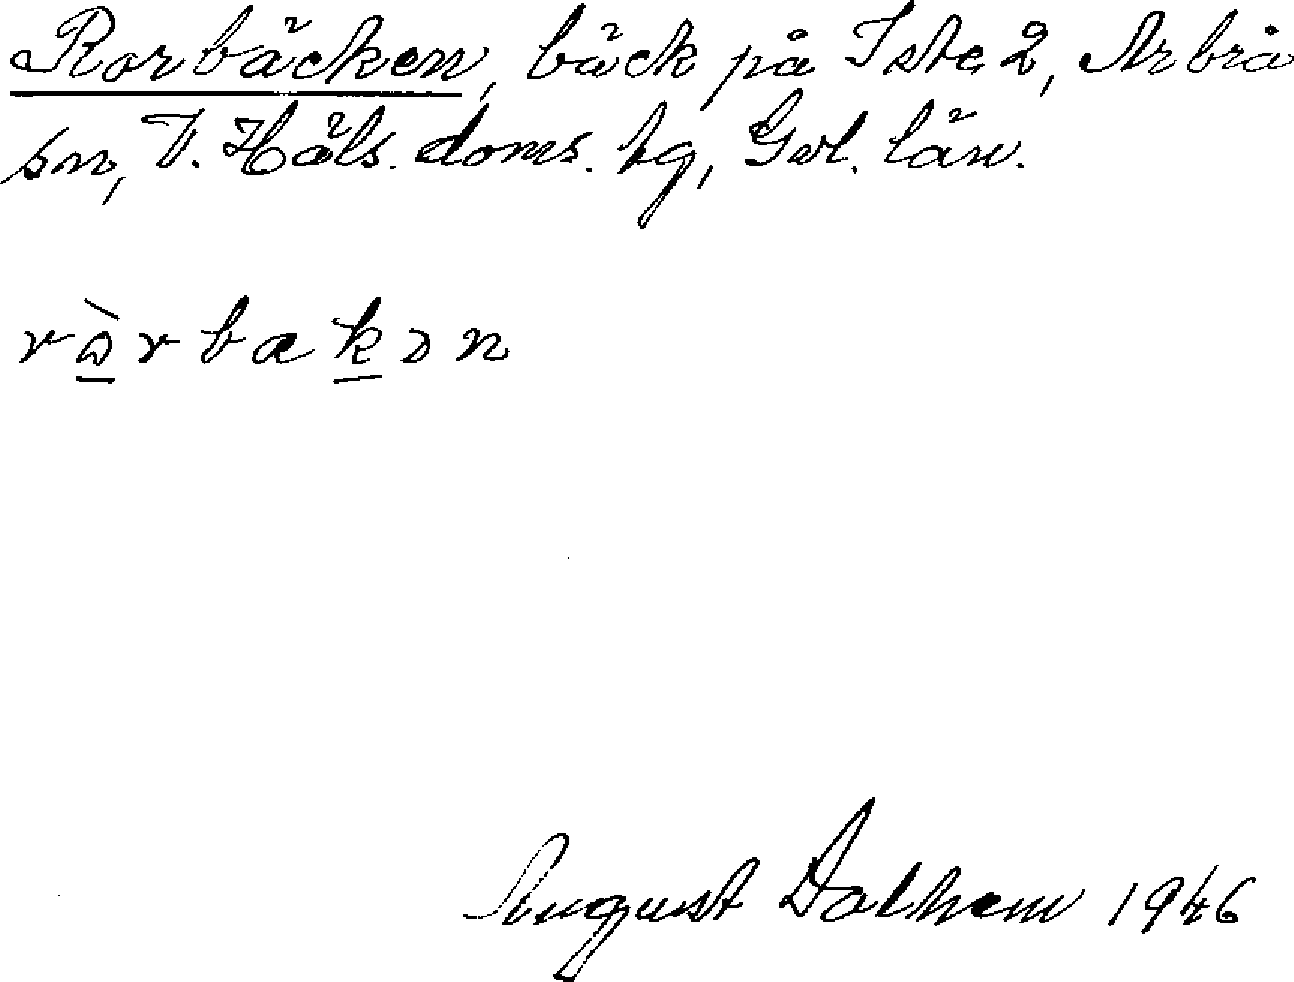 Rorbäcken, bäck på Iste 2, Arbrå
sn, V. Häls. doms. hg, Gvl. län.
August Dalhem 1946